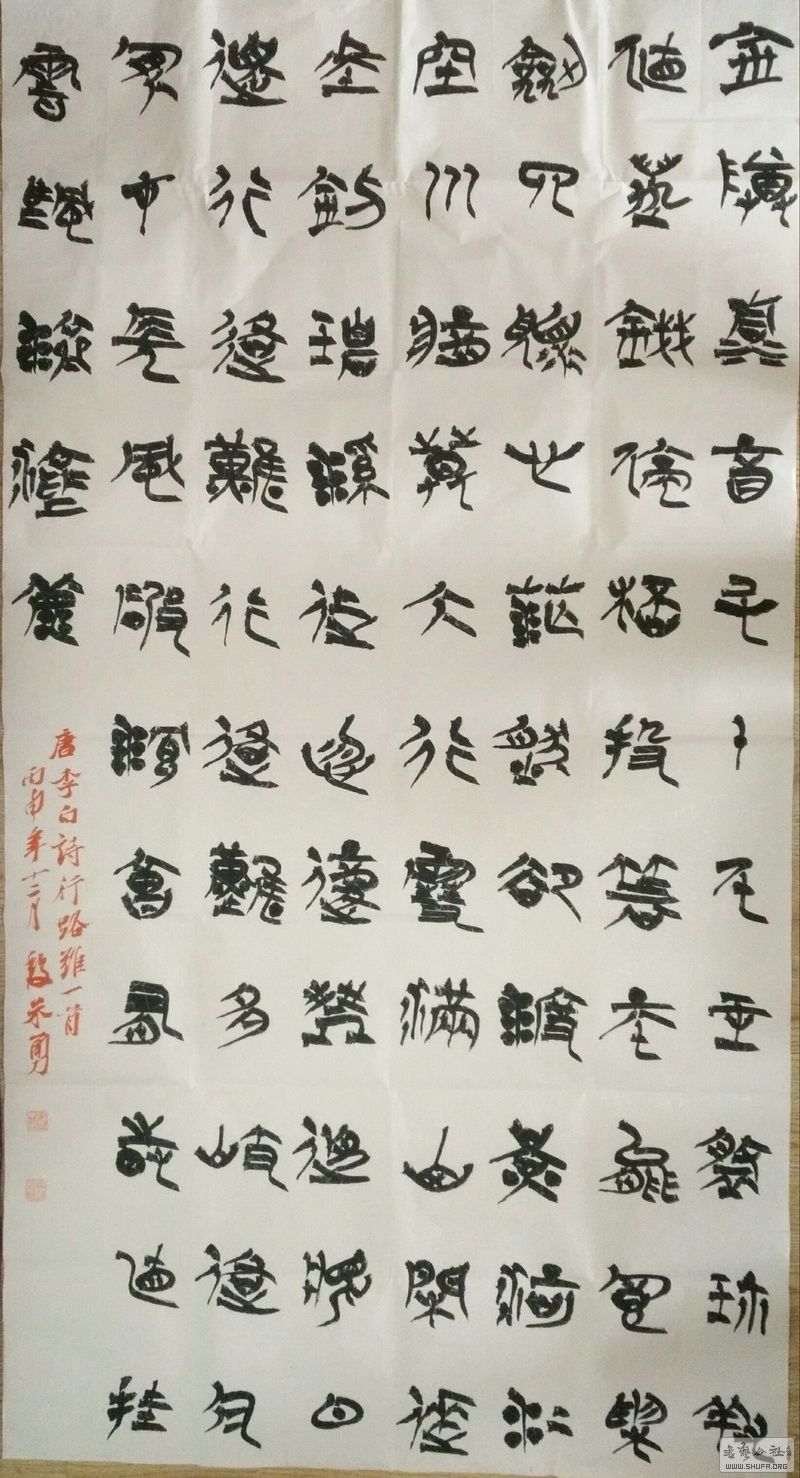 金樽清酒斗十千玉盤珍羞
值萬錢停杯投箸不能食拔
劍四顧心茫然欲渡黃河冰
塞川將登太行雪滿山閒來
坐釣碧溪上忽復乘舟夢日
邊行路難行路難多岐路今
安在長風破浪會有時值挂
雲帆濟滄海
唐李白詩行路難一首
丙申年十二月
書藝公社
WWW.SHUFA.ORG